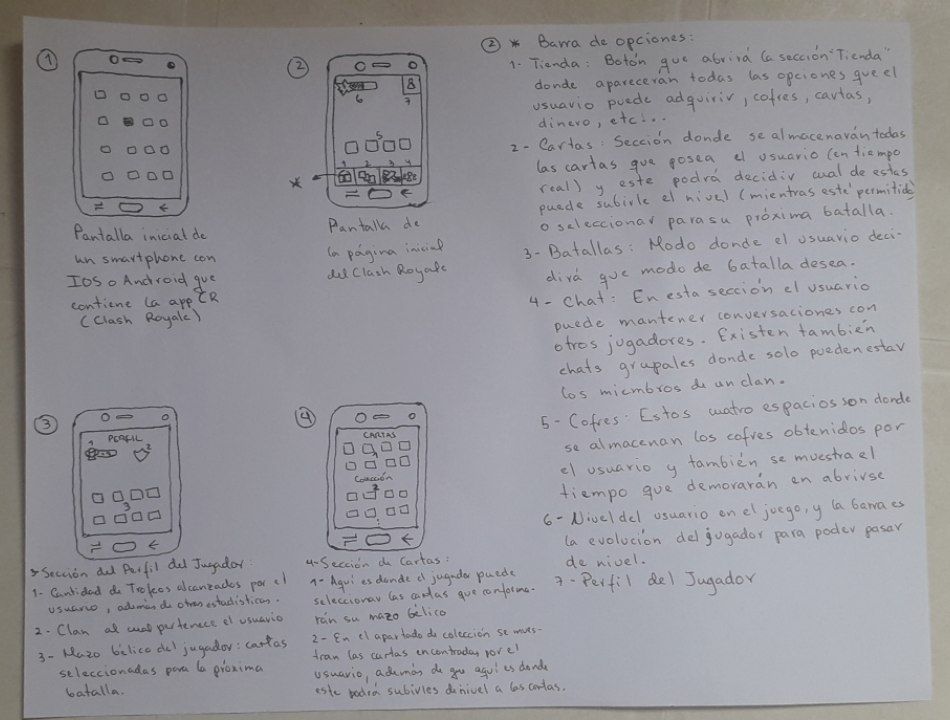 1
Pantalla inicial de
un smartphone con
IOS o Android que
contiene la app CR
(Clash Royale)
2
8
6
7
5
1 2 3 4
*
Pantalla de
la página inicial
del Clash Royale
3
PERFIL
1
2
3
3-Sección del Perfil del Jugador:
1- Cantidad de Trofeos alcanzados por el
usuario, además de otras estadísticas.
2- Clan al cual pertenece el usuario
3- Mazo bélico del jugador: cartas
seleccionadas para la próxima
batalla.
4
CARTAS
1
Colección
2
4-Sección de Cartas:
1- Aquí es donde el jugador puede
seleccionar las cartas que conforma-
rán su mazo bélico
2- En el apartado de colección se mues-
tran las cartas encontradas por el
usuario, además de que aquí es donde
este podrá subirles de nivel a las cartas.
2 * Barra de opciones:
1- Tienda: Botón que abrirá la sección "Tienda"
donde aparecerán todas las opciones que el
usuario puede adquirir, cofres, cartas,
dinero, etc...
2- Cartas: Sección donde se almacenarán todas
las cartas que posea el usuario (en tiempo
real) y este podrá decidir cual de estas
puede subirle el nivel (mientras esté permitido)
o seleccionar para su próxima batalla.
3- Batallas: Modo donde el usuario deci-
dirá que modo de batalla desea.
4- Chat: En esta sección el usuario
puede mantener conversaciones con
otros jugadores. Existen también
chats grupales donde solo pueden estar
los miembros de un clan.
5- Cofres: Estos cuatro espacios son donde
se almacenan los cofres obtenidos por
el usuario y también se muestra el
tiempo que demorarán en abrirse
6- Nivel del usuario en el juego, y la barra es
la evolución del jugador para poder pasar
de nivel.
7- Perfil del Jugador